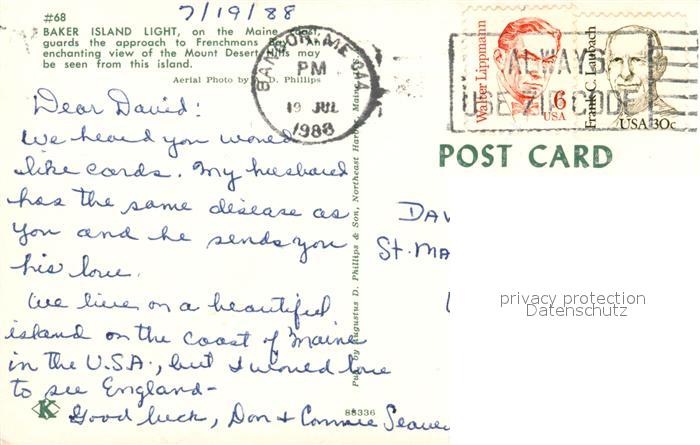 7/19/88
#68
BAKER ISLAND LIGHT, on the Maine coast,
guards the approach to Frenchmans Bay. An
enchanting view of the Mount Desert Hills may
be seen from this island.
Aerial Photo by D. Phillips
BANGOR, ME 044
PM
19 JUL
1988
ALWAYS
USE ZIP CODE
Walter Lippmann
6
USA
Frank C. Laubach
USA 30c
POST CARD
Dear David:
We heard you wound
like cards. My husband
has the same disease as
you and he sends you
his love.
We live on a beautiful
island on the coast of Maine
in the U.S.A., but I would love
to see England-
Good luck, Don & Connie Seavey
Pub. by Augustus D. Phillips & Son, Northeast Harbor, Maine
DAV
St. MA
privacy protection
Datenschutz
K
88336